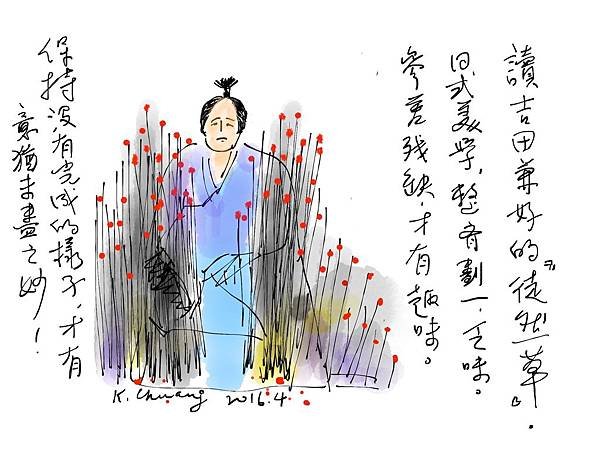 讀吉田兼好的『徒然草』．
日式美學，整齊劃一，乏味。
參差殘缺，才有趣味。
保持沒有完成的樣子，才有
意猶未盡之妙！
K. Chuang 2016.4